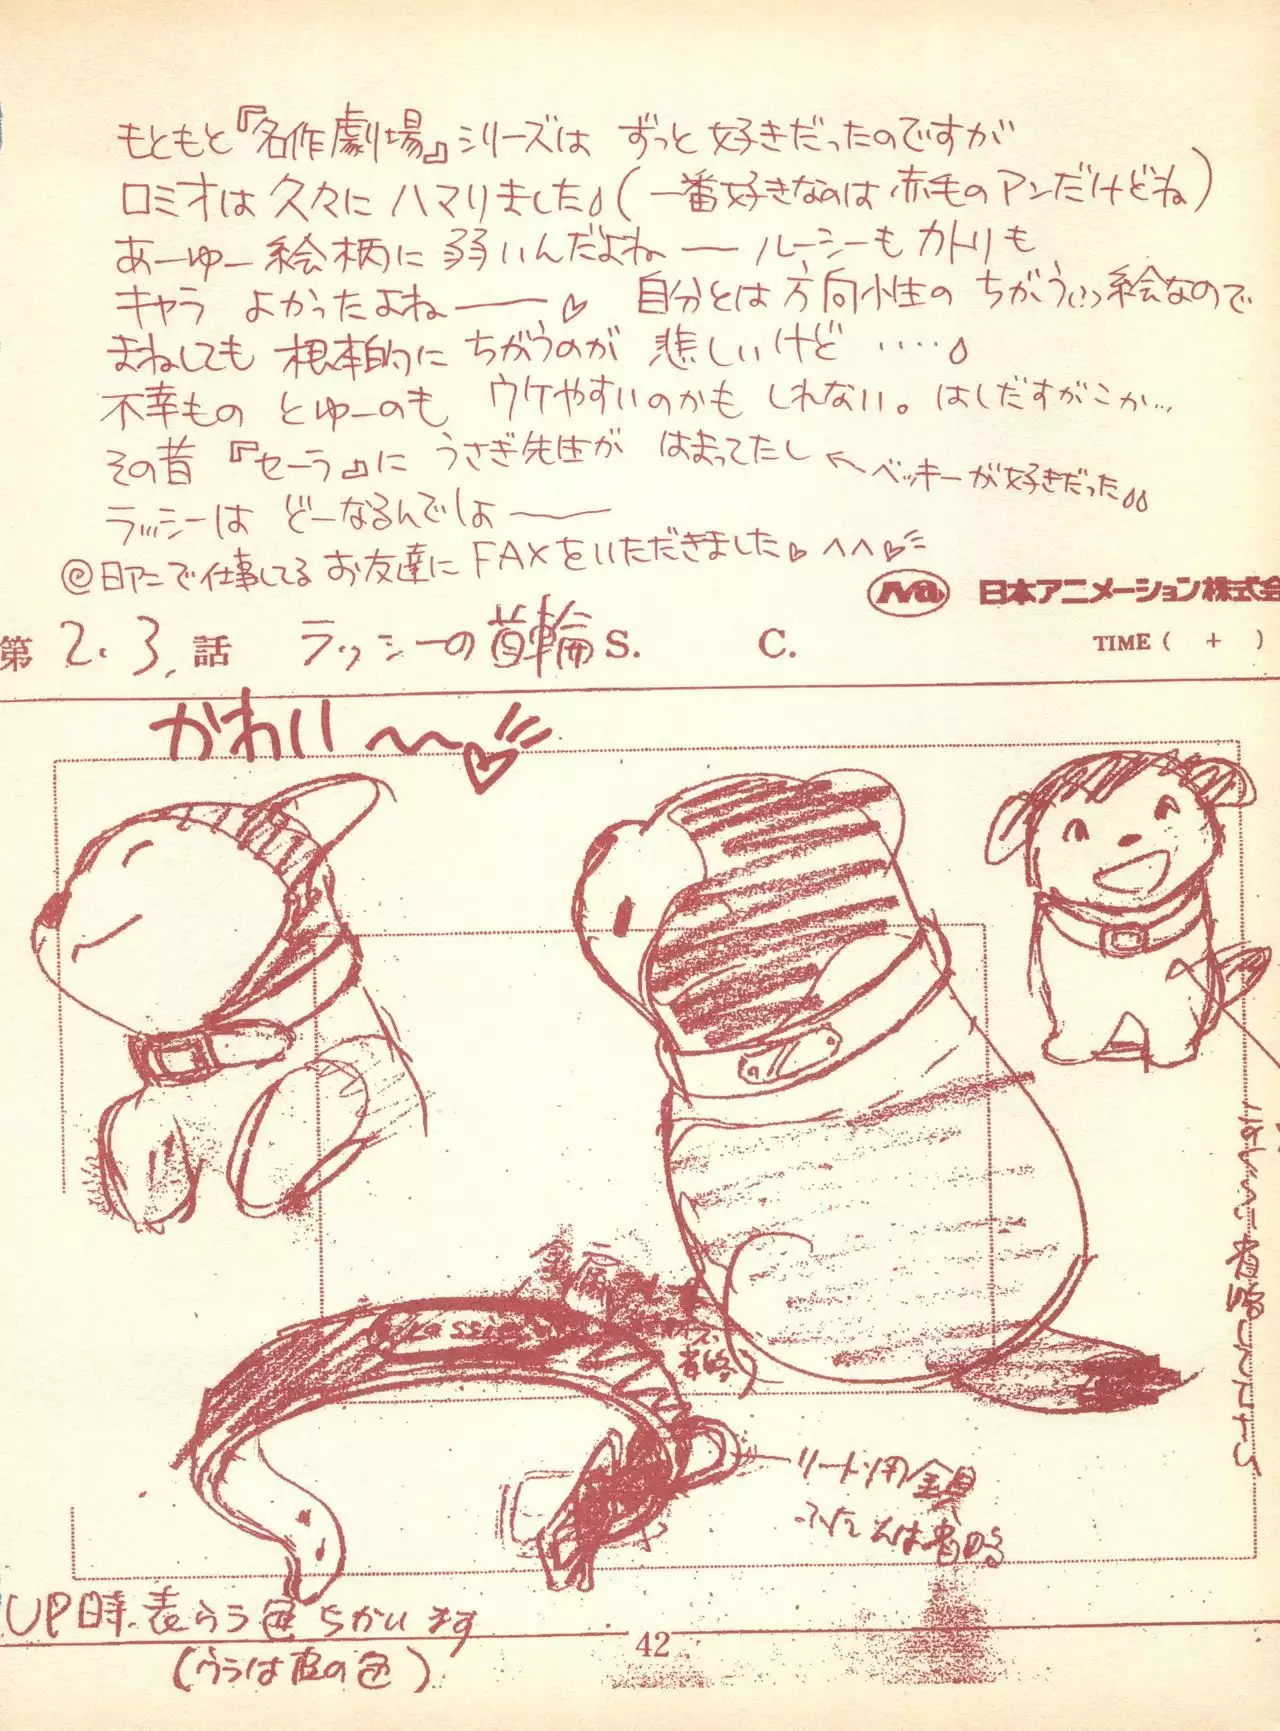 もともと『名作劇場』シリーズは ずっと好きだったのですが
ロミオは久々に ハマりました♪(一番好きなのは 赤毛のアンだけどね)
あーゆー絵柄に 弱いんだよね── ルーシーもカトリも
キャラ よかったよね──♡ 自分とは方向性の ちがうっつ絵なので
まねしても 根本的に ちがうのが 悲しいけど ……
不幸もの とゆーのも ウケやすいのかも しれない。はしだすがこか…
その昔 『セーラ』に うさぎ先生が はまってたし ←ベッキーが好きだった
ラッシーは どーなるんでしょ──
@日アニで仕事してる お友達に FAXをいただきました♡ ^^♡
日本アニメーション株式会
第 2.3. 話 ラッシーの首輪 S. C. TIME ( + )
かわい〜〜♡
金属
Lassie
省略)
リード用金具
ふだんは省略
UP時、表らうら色ちがいます
(ウラは皮の色)
42